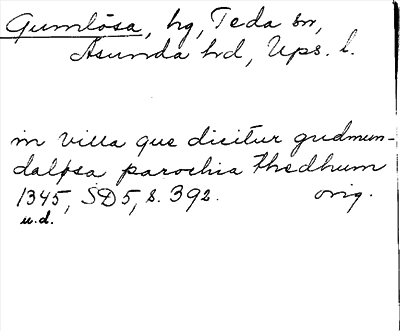 Gumlösa, hg, Teda sn,
Åsunda hd, Upps. l.
in villa que dicitur gudmun-
daløsa parochia thedhum
1345, SD5, s. 392. orig.
u.d.